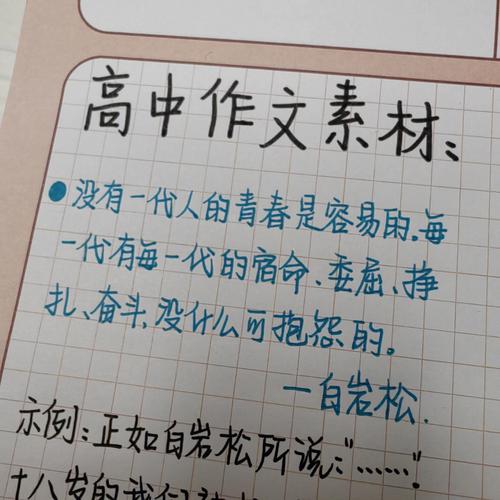 高中作文素材:
●没有一代人的青春是容易的.每
一代有每一代的宿命、委屈、挣
扎、奋斗,没什么可抱怨的。
—白岩松.
示例:正如白岩松所说:"……".
十八岁的我们